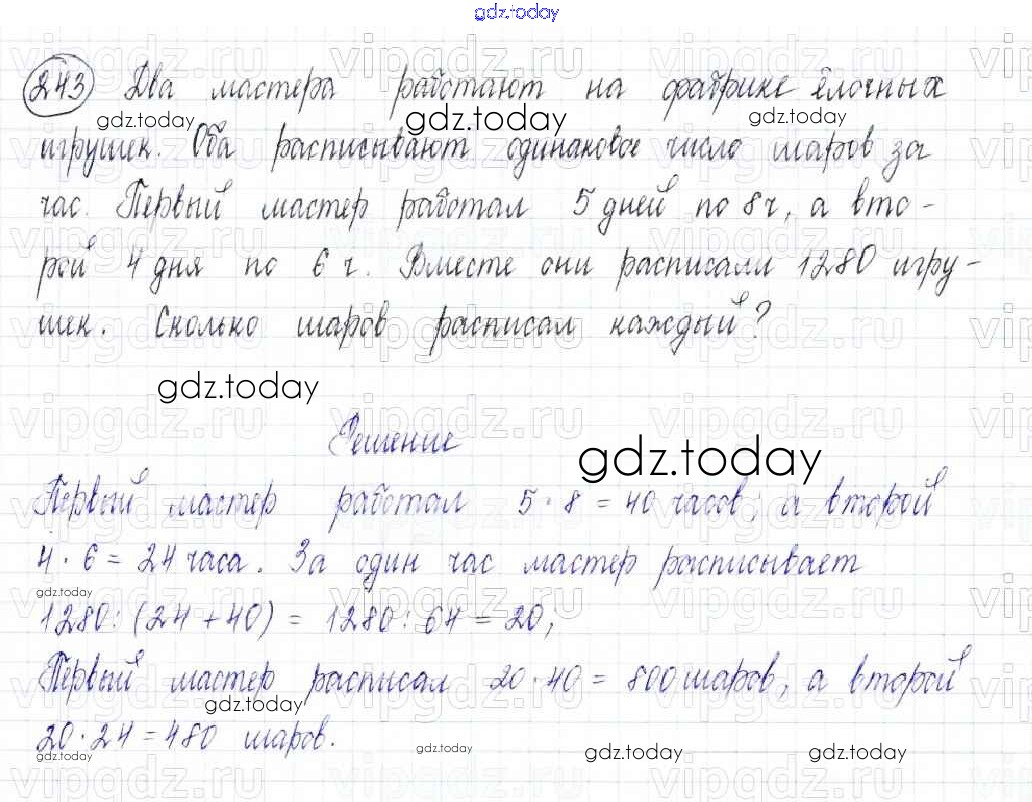 gdz.today
243 Два мастера работают на фабрике ёлочных
игрушек. Оба расписывают одинаковое число шаров за
час. Первый мастер работал 5 дней по 8 ч, а вто-
рой 4 дня по 6 ч. Вместе они расписали 1280 игру-
шек. Сколько шаров расписал каждый?
Решение
Первый мастер работал 5 · 8 = 40 часов, а второй
4 · 6 = 24 часа. За один час мастер расписывает
1280 : (24 + 40) = 1280 : 64 = 20;
Первый мастер расписал 20 · 40 = 800 шаров, а второй
20 · 24 = 480 шаров.